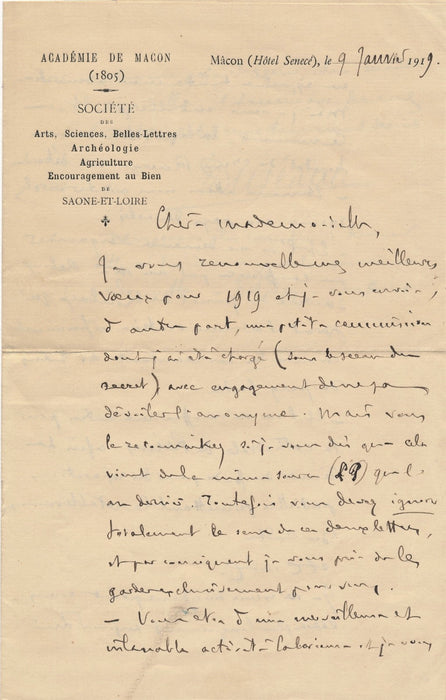 ACADÉMIE DE MACON
(1805)
SOCIÉTÉ
DES
Arts, Sciences, Belles-Lettres
Archéologie
Agriculture
Encouragement au Bien
DE
SAONE-ET-LOIRE
Mâcon (Hôtel Senecé), le 9 Janvier 1919.
Chère Mademoiselle,
Je vous renouvelle mes meilleurs
vœux pour 1919 et je vous envoie,
d'autre part, une petite commission
dont j'ai été chargé (sous le sceau du
secret) avec engagement de ne pas
dévoiler l'anonyme. Mais vous
le reconnaîtrez si je vous dis que cela
vient de la même source (LP) que l'
an dernier. Toutefois vous devez ignorer
totalement le sens de ces deux lettres,
et par conséquent je vous prie de les
garder exclusivement pour vous.
— Vous êtes d'une merveilleuse et
inlassable activité laborieuse et je vous